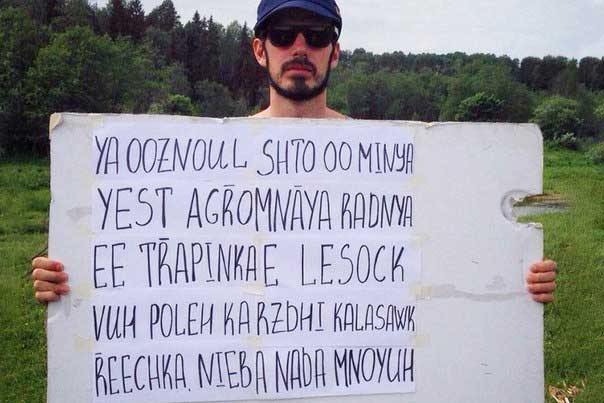 YA OOZNOUL SHTO OO MINYA
YEST AGROMNAYA RADNYA
EE TRAPINKAE LESOCK
VUH POLEH KARZDHI KALASAWK
REECHKA, NIEBA NADA MNOYUH